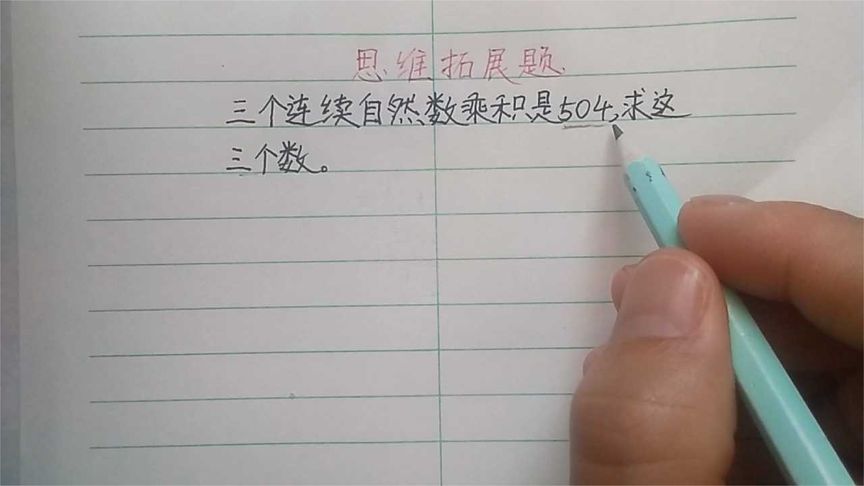 思维拓展题
三个连续自然数乘积是504,求这
三个数。